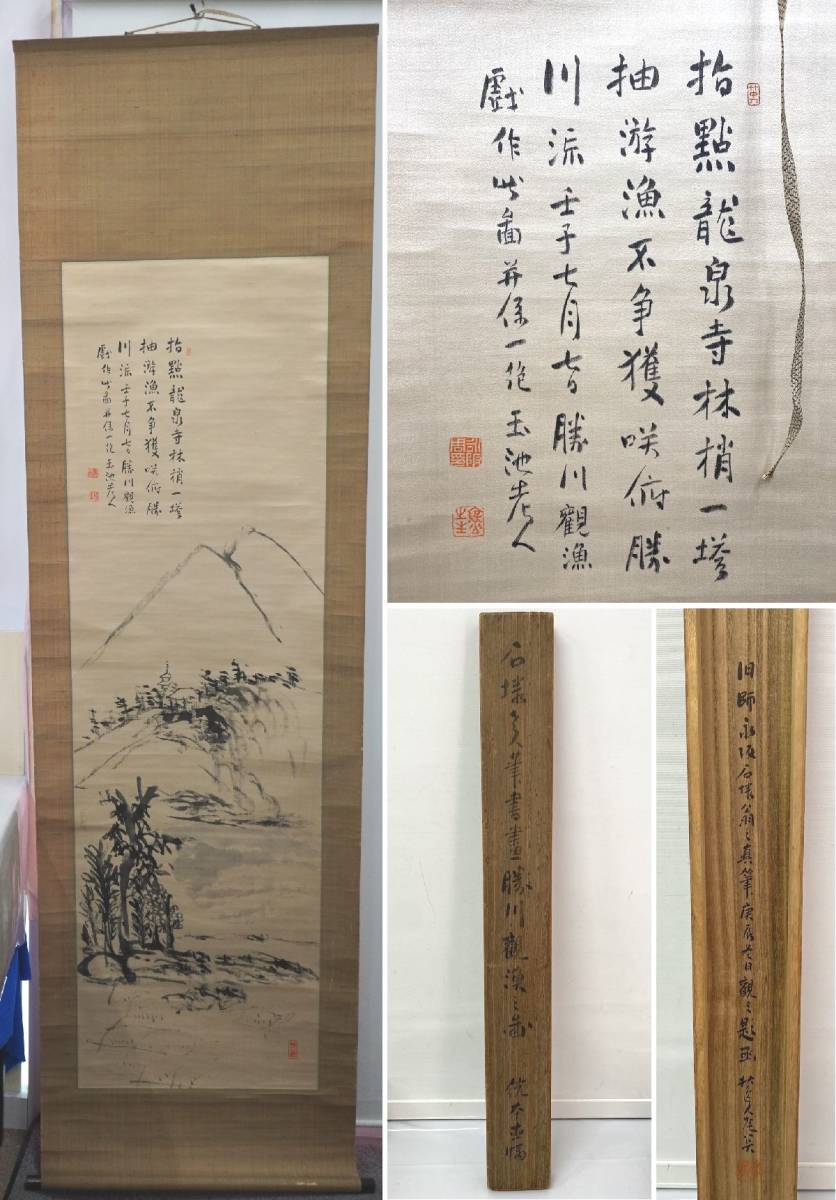 指點龍泉寺林梢一塔
抽游漁不爭獲咲俯勝
川流壬子七月七日勝川觀漁
戲作此圖并係一絶 玉池老人
指點龍泉寺林梢一塔
抽游漁不爭獲咲俯勝
川流壬子七月七日勝川觀漁
戲作此圖并係一絶 玉池老人
石埭老人筆書畫勝川觀漁之圖 絖本立幅
旧師永坂石埭翁之真筆庚辰日觀之題函